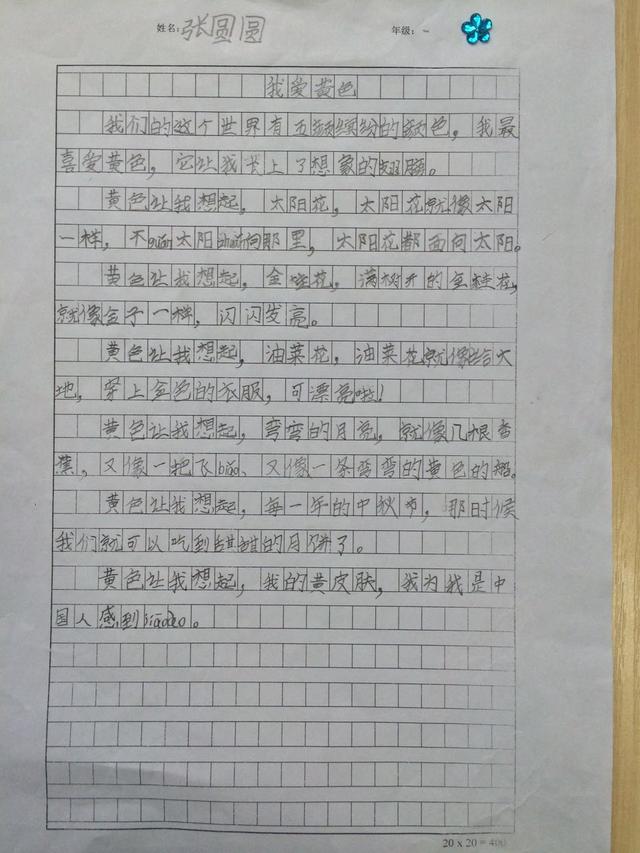 姓名:张圆圆 年级:一
我爱黄色
我们的这个世界有五颜缤纷的颜色，我最
喜爱黄色，它让我长上了想象的翅膀。
黄色让我想起，太阳花，太阳花就像太阳
一样，不guǎn太阳zhuǎn向那里，太阳花都面向太阳。
黄色让我想起，金桂花，满树开的金桂花，
就像金子一样，闪闪发亮。
黄色让我想起，油菜花，油菜花就像给大
地，穿上金色的衣服，可漂亮啦！
黄色让我想起，弯弯的月亮，就像几根香
蕉，又像一把飞biāo、又像一条弯弯的黄色的船。
黄色让我想起，每一年的中秋节，那时候
我们就可以吃到甜甜的月饼了。
黄色让我想起，我的黄皮肤，我为我是中
国人感到jiāoào。
20 x 20 = 400